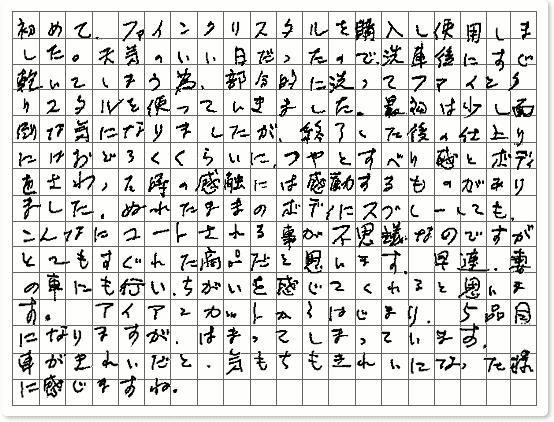 初めて、ファインクリスタルを購入し使用しま
した。天気のいい日だったので、洗車後にすぐ
乾いてしまう為、部分的に洗ってファインク
リスタルを使っていきました。最初は少し面
倒な気になりましたが、終了した後の仕上り
にはおどろくくらいに、つやとすべり感とボディ
をさわった時の感触には感動するものがあり
ました。ぬれたままのボディにスプレーしても、
こんなにコートされる事が不思議なのですが
とてもすぐれた商品だと思います。早速、妻
の車にも行い、ちがいを感じてくれると思いま
す。アイアンカットからはじまり、5品目
になりますが、はまってしまっています。
車がきれいだと、気もちもきれいになった様
に感じますね。